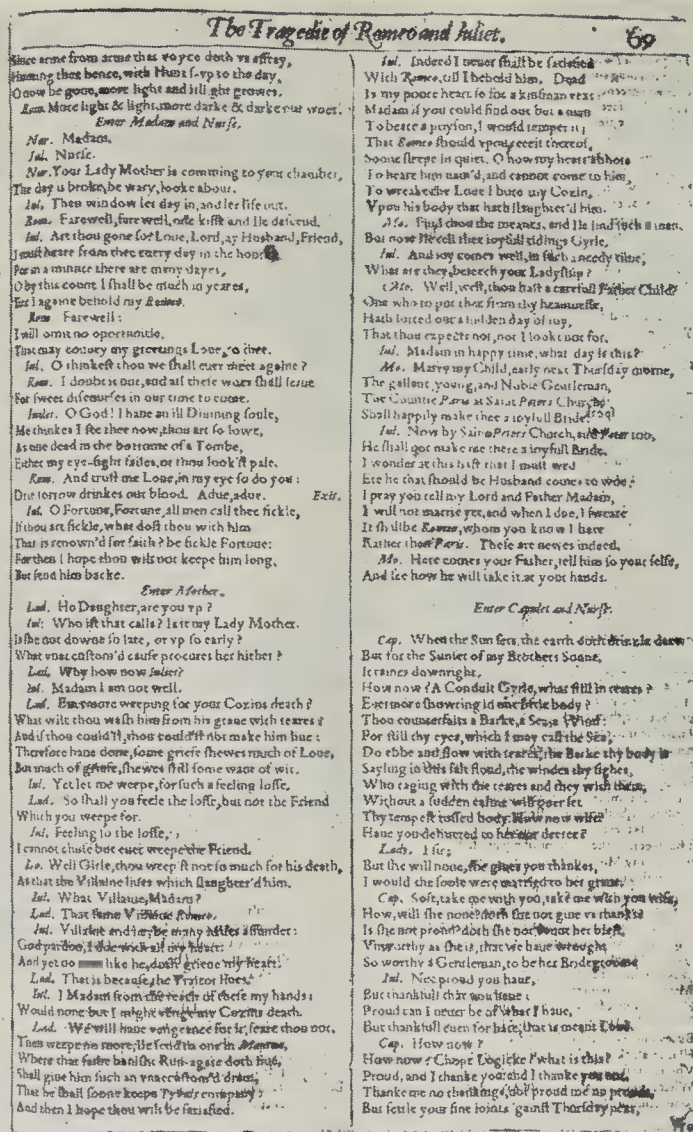 The Tragedie of Romeo and Iuliet. 69
Since arme from arme that voyce doth vs affray,
Hunting thee hence, with Hunt s-vp to the day,
O now be gone, more light and itli ght growes.
Rom. More light & light, more darke & darke our woes.
Enter Madam and Nurse.
Nur. Madam.
Iul. Nurse.
Nur. Your Lady Mother is comming to your chamber,
The day is broke, be wary, looke about.
Iul. Then window let day in, and let life out.
Rom. Farewell, farewell, one kisse and Ile descend.
Iul. Art thou gone so? Loue, Lord, ay Husband, Friend,
I must heare from thee euery day in the houre
For in a minute there are many dayes,
O by this count I shall be much in yeares,
Ere I againe behold my Romeo.
Rom. Farewell:
I will omit no oportunitie,
That may conuey my greetings Loue, to thee.
Iul. O thinkest thou we shall euer meet againe?
Rom. I doubt it not, and all these woes shall serue
For sweet discourses in our time to come.
Iuliet. O God! I haue an ill Diuining soule,
Me thinkes I see thee now, thou art so lowe,
As one dead in the bottome of a Tombe,
Either my eye-sight failes, or thou look'st pale.
Rom. And trust me Loue, in my eye so do you:
Drie sorrow drinkes our blood. Adue, adue. Exit.
Iul. O Fortune, Fortune, all men call thee fickle,
If thou art fickle, what dost thou with him
That is renown'd for faith? be fickle Fortune:
For then I hope thou wilt not keepe him long,
But send him backe.
Enter Mother.
Lad. Ho Daughter, are you vp?
Iul. Who ist that calls? Is it my Lady Mother.
Is she not downe so late, or vp so early?
What vnaccustom'd cause procures her hither?
Lad. Why how now Iuliet?
Iul. Madam I am not well.
Lad. Euermore weeping for your Cozins death?
What wilt thou wash him from his graue with teares?
And if thou could'st, thou could'st not make him liue:
Therefore haue done, some griefe shewes much of Loue,
But much of griefe, shewes still some want of wit.
Iul. Yet let me weepe, for such a feeling losse.
Lad. So shall you feele the losse, but not the Friend
Which you weepe for.
Iul. Feeling so the losse,
I cannot chuse but euer weepe the Friend.
La. Well Girle, thou weep'st not so much for his death,
As that the Villaine liues which slaughter'd him.
Iul. What Villaine, Madam?
Lad. That same Villaine Romeo.
Iul. Villaine and he, be many Miles assunder:
God pardon, I doe with all my heart:
And yet no like he, doth grieue my heart.
Lad. That is because the Traitor liues.
Iul. I Madam from the reach of these my hands:
Would none but I might venge my Cozins death.
Lad. We will haue vengeance for it, feare thou not.
Then weepe no more, Ile send to one in Mantua,
Where that same banisht Run-agate doth liue,
Shall giue him such an vnaccustom'd dram,
That he shall soone keepe Tybalt company:
And then I hope thou wilt be satisfied.
Iul. Indeed I neuer shall be satisfied
With Romeo, till I behold him. Dead
Is my poore heart so for a kinsman vext:
Madam if you could find out but a man
To beare a poyson, I would temper it;
That Romeo should vpon receit thereof,
Soone sleepe in quiet. O how my heart abhors
To heare him nam'd, and cannot come to him,
To wreake the Loue I bore my Cozin,
Vpon his body that hath slaughter'd him.
Mo. Find thou the meanes, and Ile find such a man.
But now Ile tell thee ioyfull tidings Gyrle.
Iul. And ioy comes well, in such a needy time,
What are they, beseech your Ladyship?
Mo. Well, well, thou hast a carefull Father Child?
One who to put thee from thy heauinesse,
Hath sorted out a sudden day of ioy,
That thou expects not, nor I lookt not for.
Iul. Madam in happy time, what day is this?
Mo. Marry my Child, early next Thursday morne,
The gallant, young, and Noble Gentleman,
The Countie Paris at Saint Peters Church,
Shall happily make thee a ioyfull Bride.
Iul. Now by Saint Peters Church, and Peter too,
He shall not make me there a ioyfull Bride.
I wonder at this hast, that I must wed
Ere he that should be Husband comes to woe:
I pray you tell my Lord and Father Madam,
I will not marrie yet, and when I doe, I sweare
It shallbe Romeo, whom you know I hate
Rather then Paris. These are newes indeed.
Mo. Here comes your Father, tell him so your selfe,
And see how he will take it at your hands.
Enter Capulet and Nurse.
Cap. When the Sun sets, the earth doth drizzle daew
But for the Sunset of my Brothers Sonne,
It raines downright.
How now? A Conduit Gyrle, what still in teares?
Euermore showring in one little body?
Thou counterfaits a Barke, a Sea, a Wind:
For still thy eyes, which I may call the Sea,
Do ebbe and flow with teares, the Barke thy body is
Sayling in this salt floud, the windes thy sighes,
Who raging with the teares and they with them,
Without a sudden calme will ouer set
Thy tempest tossed body. How now wife?
Haue you deliuered to her our decree?
Lady. I sir;
But she will none, she giues you thankes,
I would the foole were married to her graue.
Cap. Soft, take me with you, take me with you wife,
How, will she none? doth she not giue vs thanks?
Is she not proud? doth she not count her blest,
Vnworthy as she is, that we haue wrought
So worthy a Gentleman, to be her Bridegroome
Iul. Not proud you haue,
But thankfull that you haue:
Proud can I neuer be of what I haue,
But thankfull euen for hate, that is meant Loue.
Cap. How now?
How now? Chopt Logicke? what is this?
Proud, and I thanke you: and I thanke you not.
Thanke me no thankings, nor proud me no prouds,
But fettle your fine ioints 'gainst Thursday next,